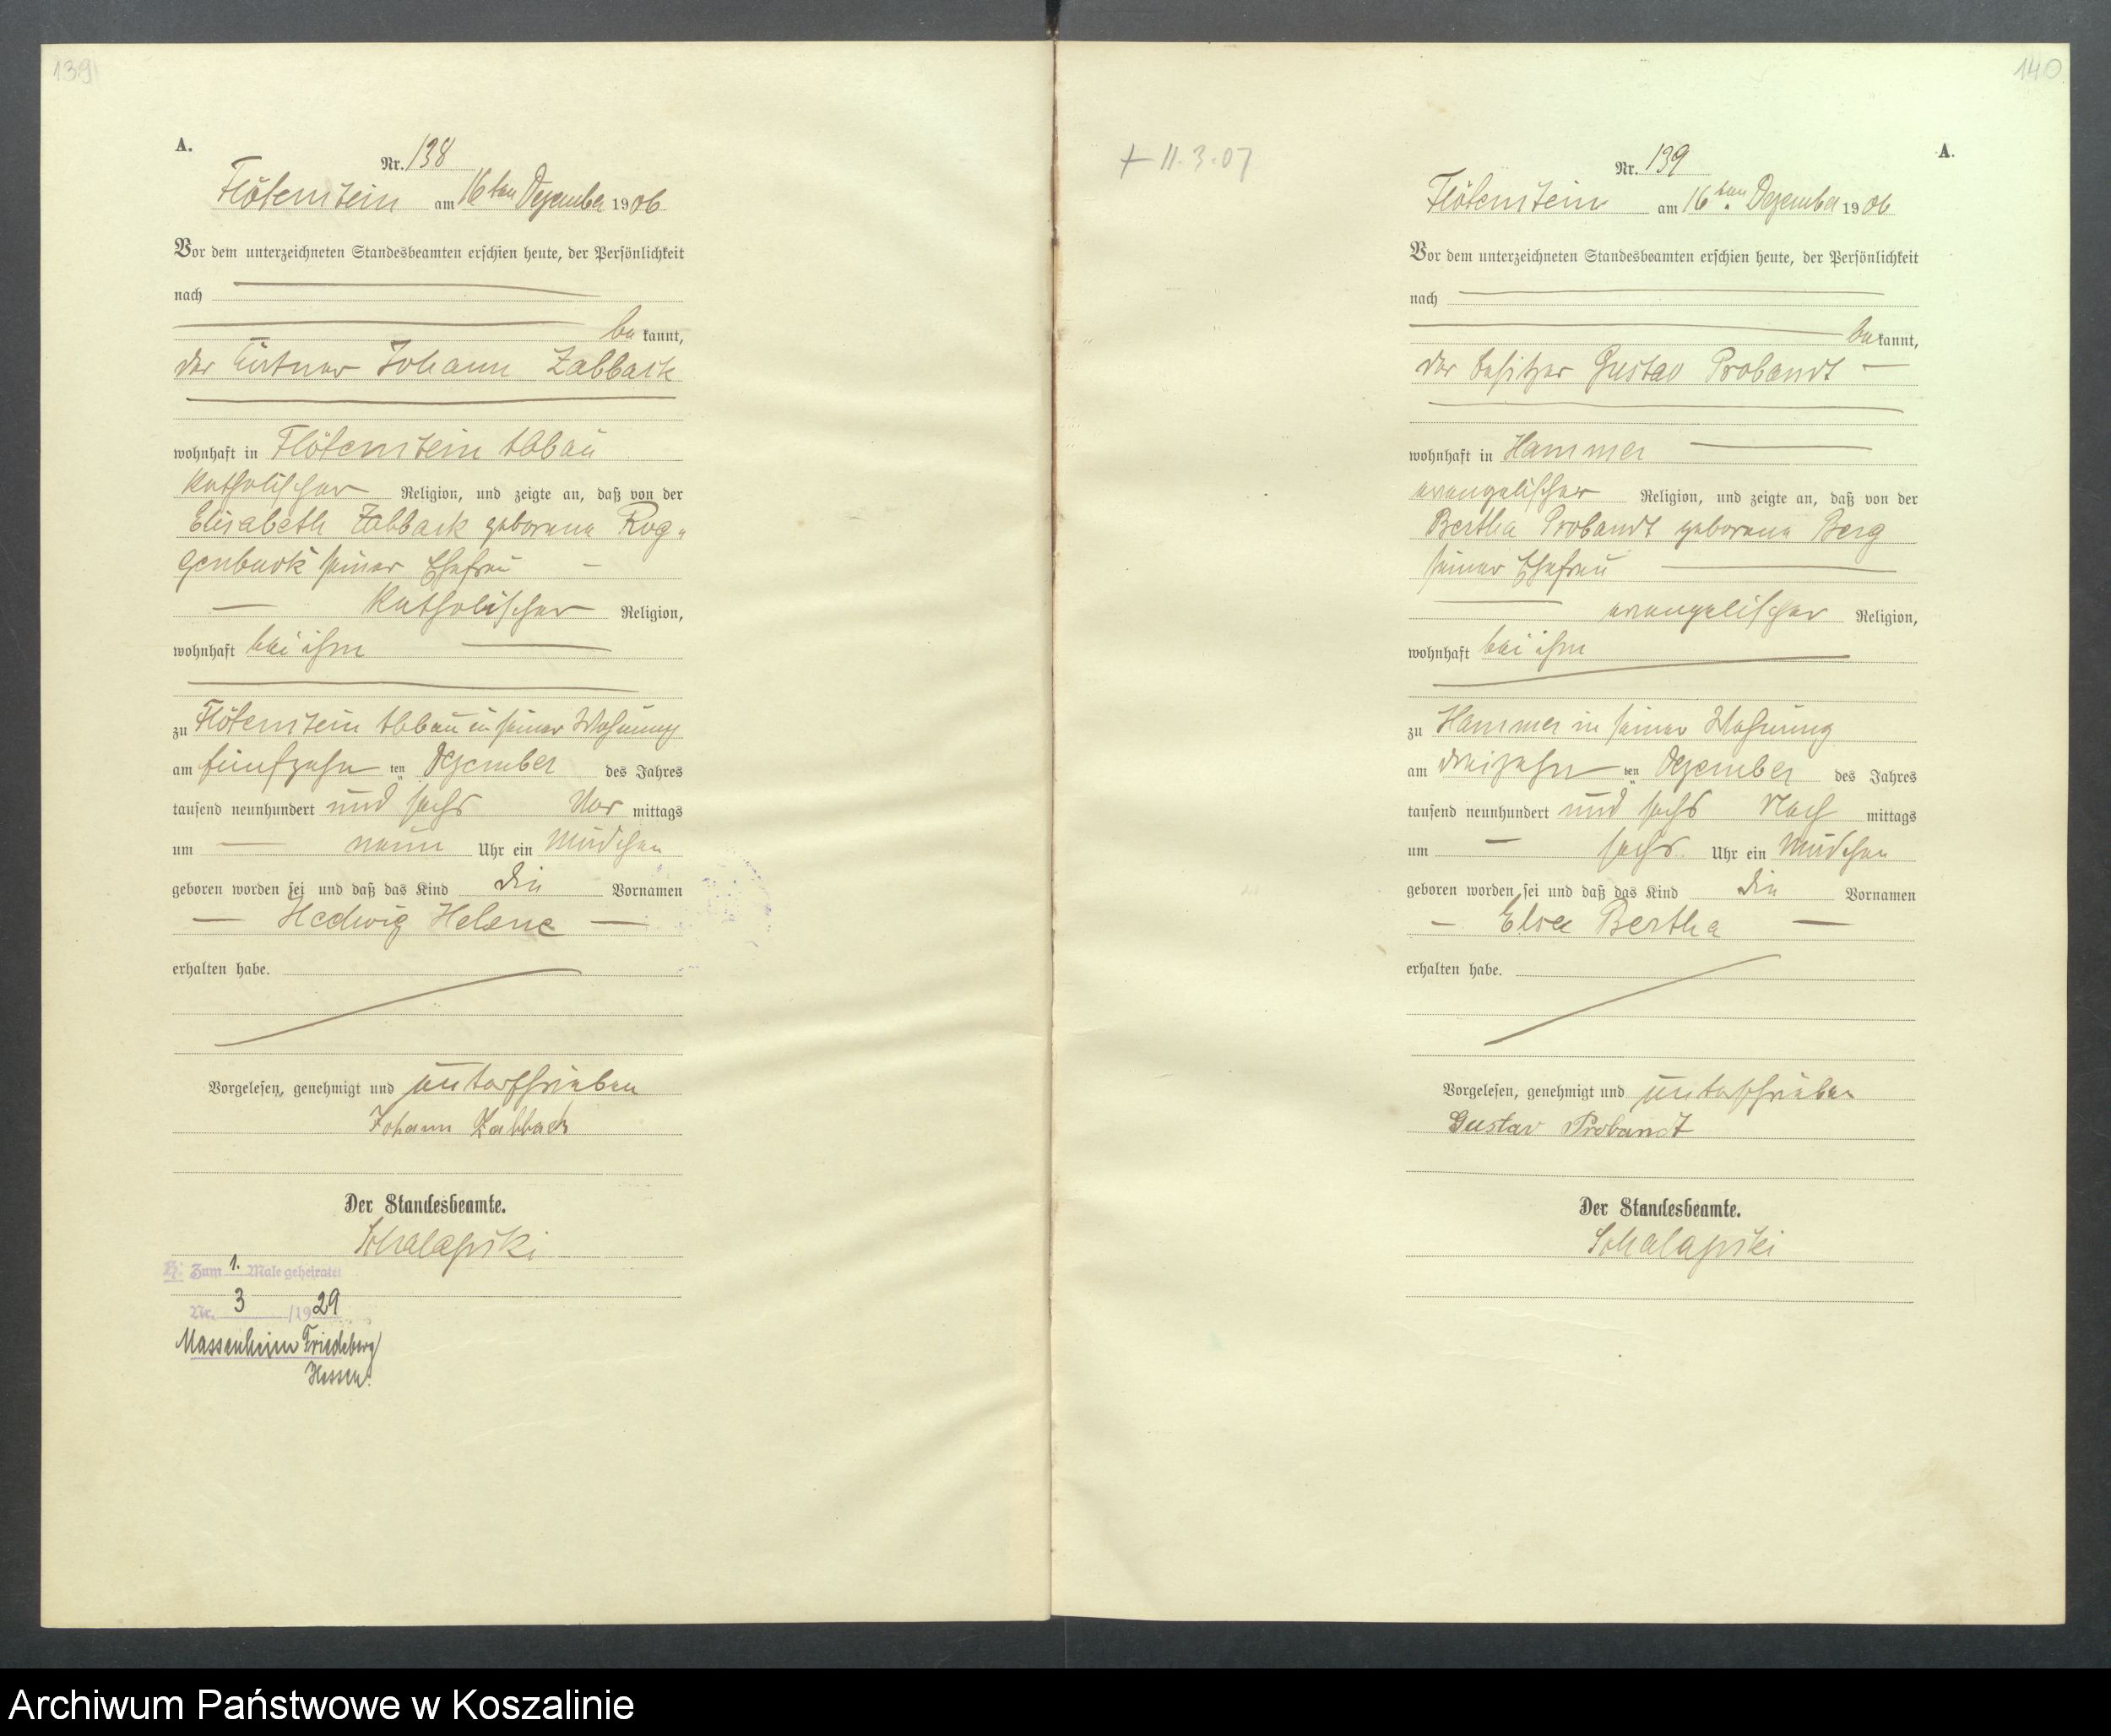 139
A.
Nr. 138
Flötenstein am 16ten Dezember 1906
Vor dem unterzeichneten Standesbeamten erschien heute, der Persönlichkeit
nach
be kannt,
der Johann Zabback
wohnhaft in Flötenstein Abbau
katholischer Religion, und zeigte an, daß von der
Elisabeth Zabback geborene Rog-
genbuck seiner Ehefrau
katholischer Religion,
wohnhaft bei ihm
zu Flötenstein Abbau in seiner Wohnung
am fünfzehn ten Dezember des Jahres
tausend neunhundert und sechs Vor mittags
um neun Uhr ein Mädchen
geboren worden sei und daß das Kind die Vornamen
Hedwig Helene
erhalten habe.
Vorgelesen, genehmigt und unterschrieben
Johann Zabback
Der Standesbeamte.
Zum 1. Male geheiratet
Nr. 3 /1929
Massenheim Friedeberg
Hessen.
140
+ 11.3.07
A.
Nr. 139
Flötenstein am 16ten Dezember 1906
Vor dem unterzeichneten Standesbeamten erschien heute, der Persönlichkeit
nach
be kannt,
der Besitzer Gustav Probandt
wohnhaft in Hammer
evangelischer Religion, und zeigte an, daß von der
Bertha Probandt geborene Berg
seiner Ehefrau
evangelischer Religion,
wohnhaft bei ihm
zu Hammer in seiner Wohnung
am dreizehn ten Dezember des Jahres
tausend neunhundert und sechs Nach mittags
um sechs Uhr ein Mädchen
geboren worden sei und daß das Kind die Vornamen
Elsa Bertha
erhalten habe.
Vorgelesen, genehmigt und unterschrieben
Gustav Probandt
Der Standesbeamte.
Archiwum Państwowe w Koszalinie